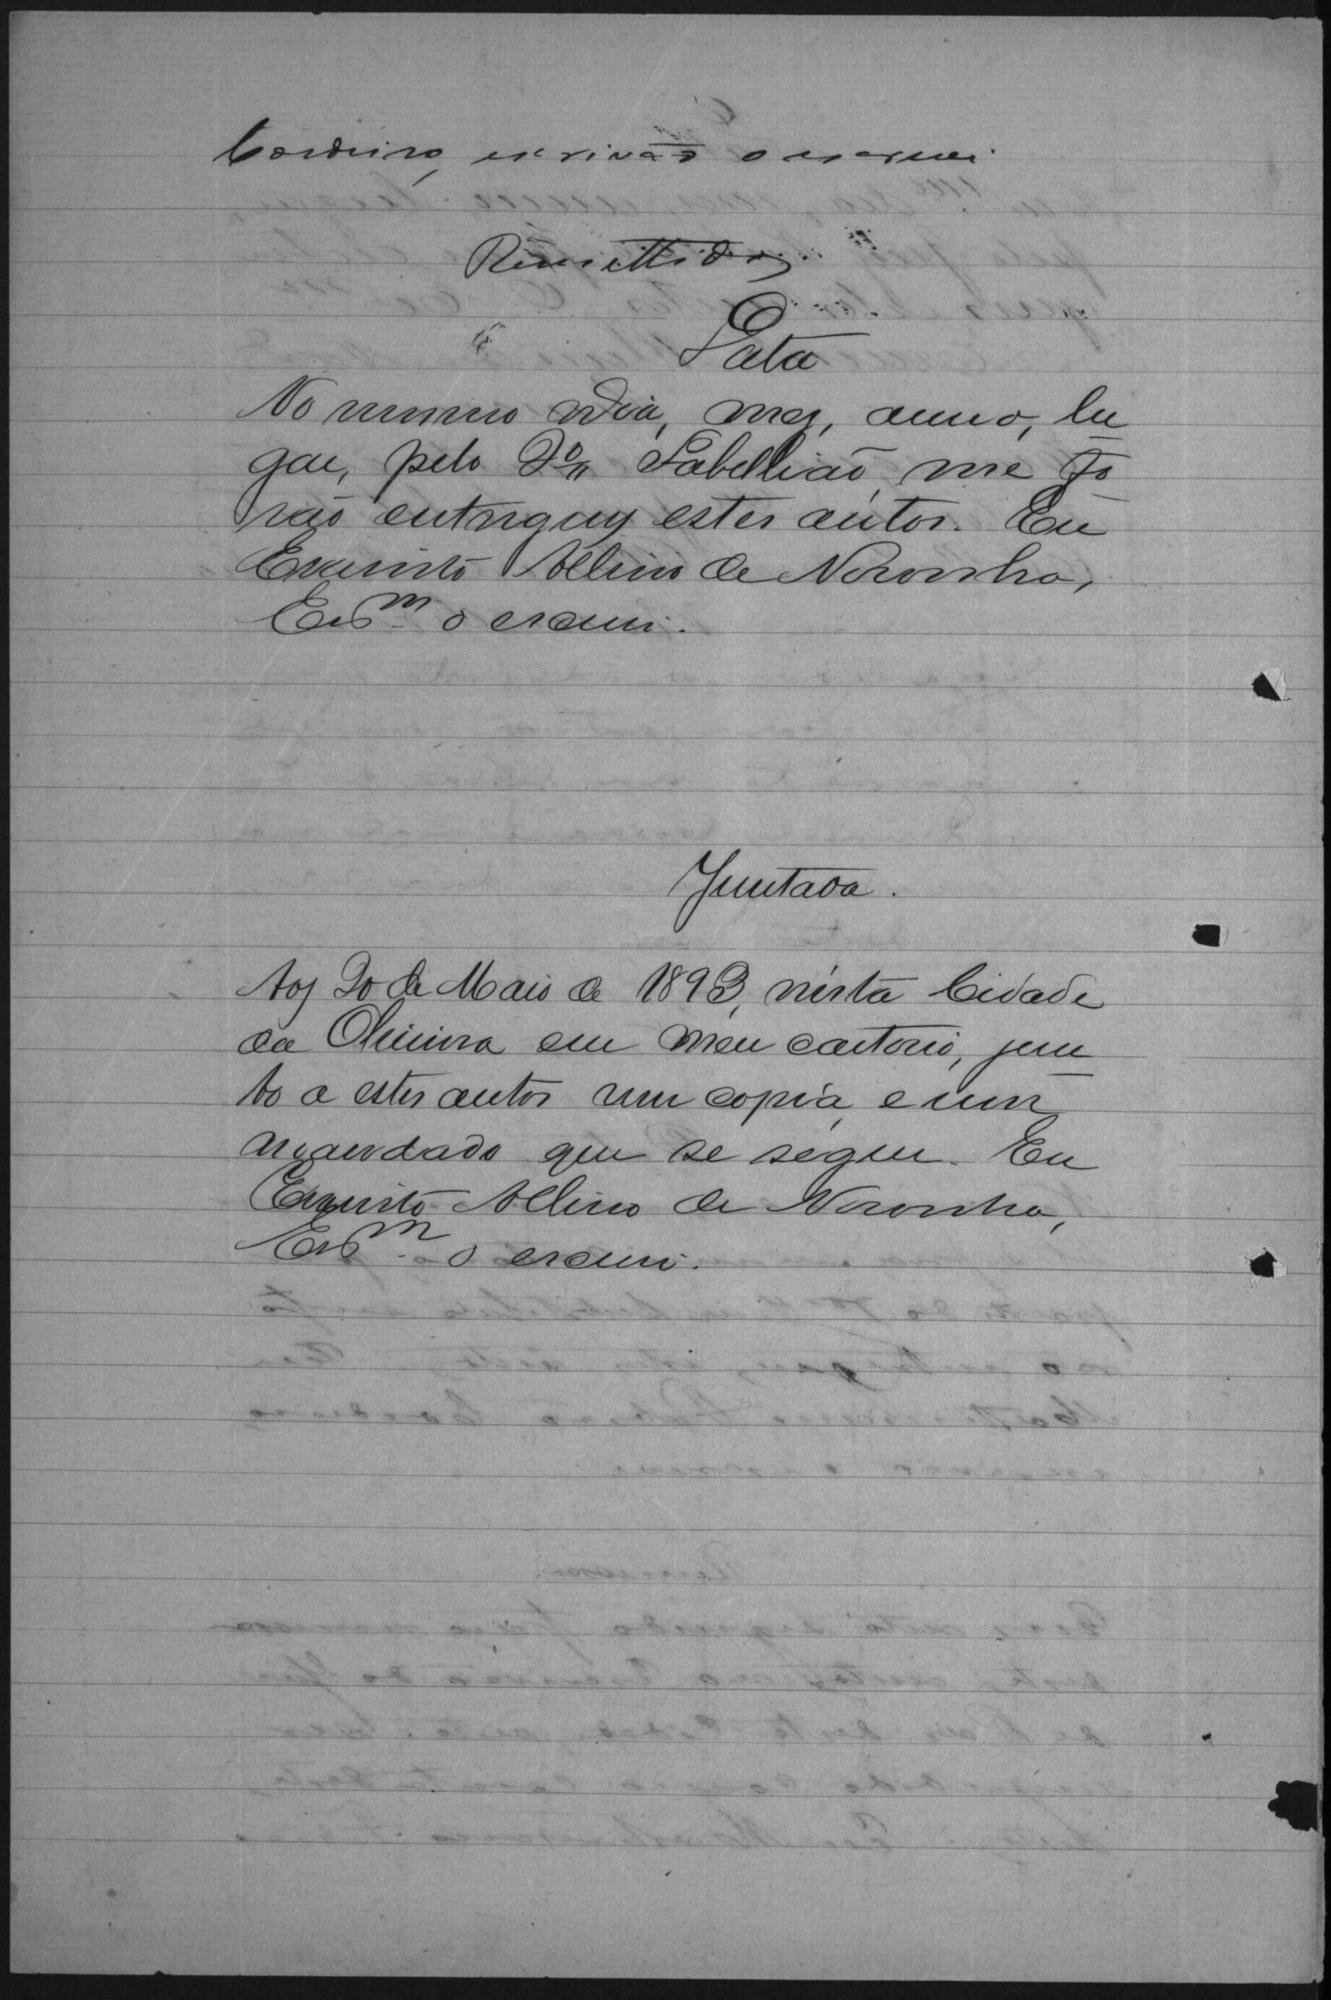 Cordeiro, escrivão o escrevi.
Remettidos
Data
No mesmo dia, mez, anno, lu
gar, pelo 2º Tabellião, me fo
rão entregues estes autos. Eu
Evaristo Albino de Noronha,
Esc.m o escrevi.
Juntada.
Aos 20 de Maio de 1893, nésta Cidade
da Oliveira em meu cartorio, jun
to a estes autos uma copia, e um
mandado que se segue. Eu
Evaristo Albino de Noronha,
Esc.m o escrevi.